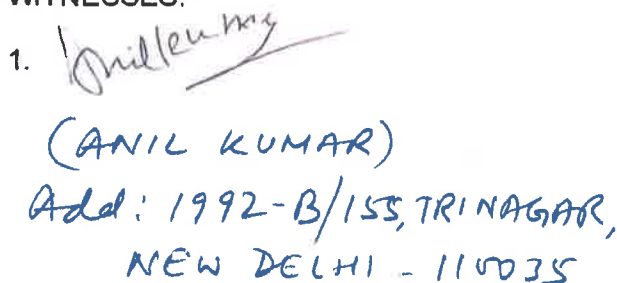 WITNESSES:
1. Anil Kumar
(ANIL KUMAR)
Add: 1992-B/155, TRINAGAR,
NEW DELHI - 110035